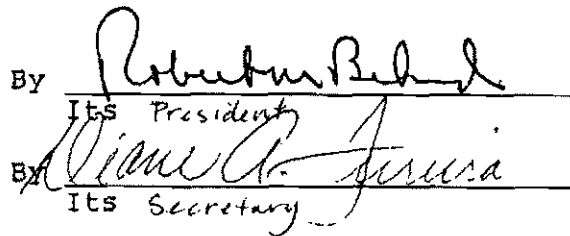 By Robert M
Its President
By Diane A. Ferreira
Its Secretary